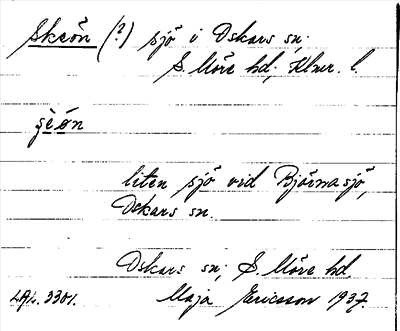 Skeön (?) sjö i Oskars sn;
S. Möre hd, Klmr. l.
šeøn
liten sjö vid Björnasjö,
Oskars sn.
Oskars sn; S. Möre hd
Maja Ericsson 1937.
3301.